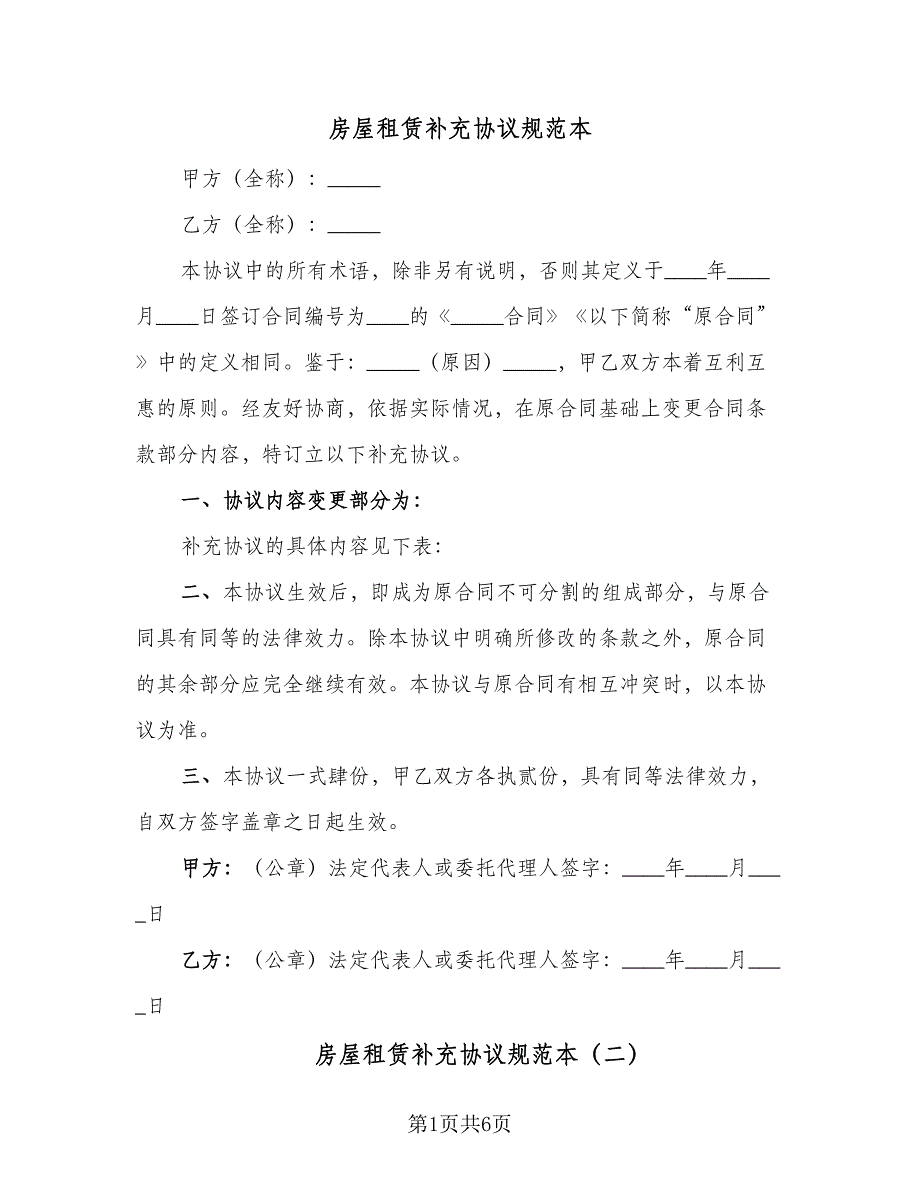 房屋租赁补充协议规范本
甲方（全称）：_____
乙方（全称）：_____
本协议中的所有术语，除非另有说明，否则其定义于____年____
月____日签订合同编号为____的《_____合同》《以下简称“原合同”
》中的定义相同。鉴于：_____（原因）_____，甲乙双方本着互利互
惠的原则。经友好协商，依据实际情况，在原合同基础上变更合同条
款部分内容，特订立以下补充协议。
一、协议内容变更部分为：
补充协议的具体内容见下表：
二、本协议生效后，即成为原合同不可分割的组成部分，与原合
同具有同等的法律效力。除本协议中明确所修改的条款之外，原合同
的其余部分应完全继续有效。本协议与原合同有相互冲突时，以本协
议为准。
三、本协议一式肆份，甲乙双方各执贰份，具有同等法律效力，
自双方签字盖章之日起生效。
甲方：（公章）法定代表人或委托代理人签字：____年____月___
_日
乙方：（公章）法定代表人或委托代理人签字：____年____月___
_日
房屋租赁补充协议规范本（二）
第1页共6页